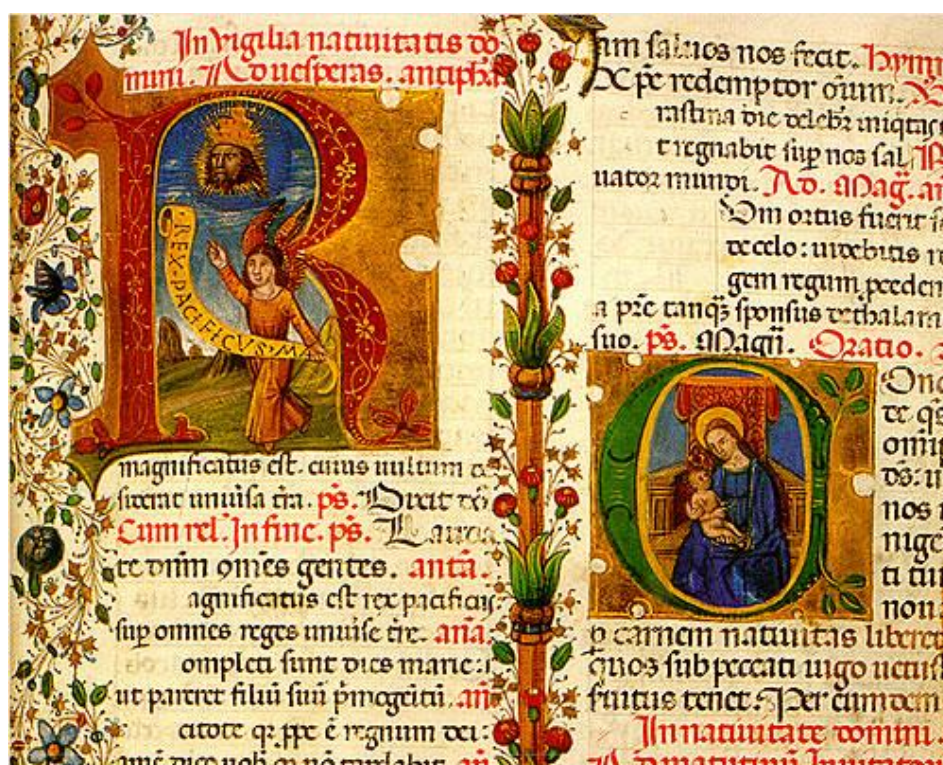 In vigilia natiuitatis do
mini. Ad uesperas. antipha
REX · PACIFICVS · MA
magnificatus est. cuius uultum de
siderat uniuʼsa tʼra. ps. Dixit dō
Cum rel. In fine. ps. Lauda
te dnm omēs gentes. antā.
agnificatus est rex pacificus
sup omnes reges uniuʼse tʼre. anā
ompleti sunt dies marie:
ut pareret filiū suū pʼmogēitū. an
citote qʒ ppe ē regnum dei:
amē dico uob qʒ nō tardabit. an
am saluos nos fecit. hymn
Xpe redemptor oium.
rastina die delebr iniqtas
t regnabit sup nos sal
uator mundi. Ad. Mag. an
um ortus fuerit
de celo: uidebitis re
gem regum proceden
a pre tanqʒ sponsus de thalam
suo. ps. Magn. Oratio.
Onc
te qs
omip
ds:
nos
nige
ti
nou
p carnem natiuitas liberet
quos sub peccati iugo uetus
fuitus tenet. Per eundem
In natiuitate domini.
Ad matutinū Inuitator